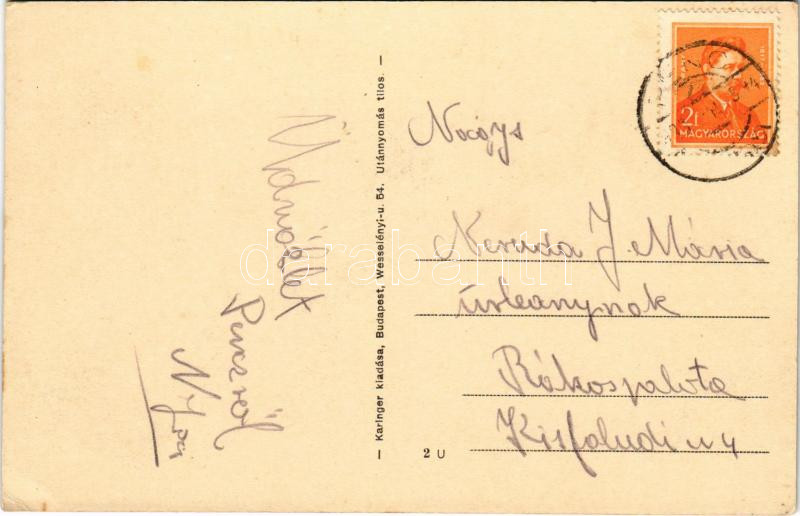 Üdvözlet
Penczről
2f
MAGYARORSZÁG
Nagys
Neruda J. Mária
úrleánynak
Rákospalota
Kisfaludi u 4
— Karinger kiadása, Budapest, Wesselényi-u. 54. Utánnyomás tilos. —
2 U
darabanth